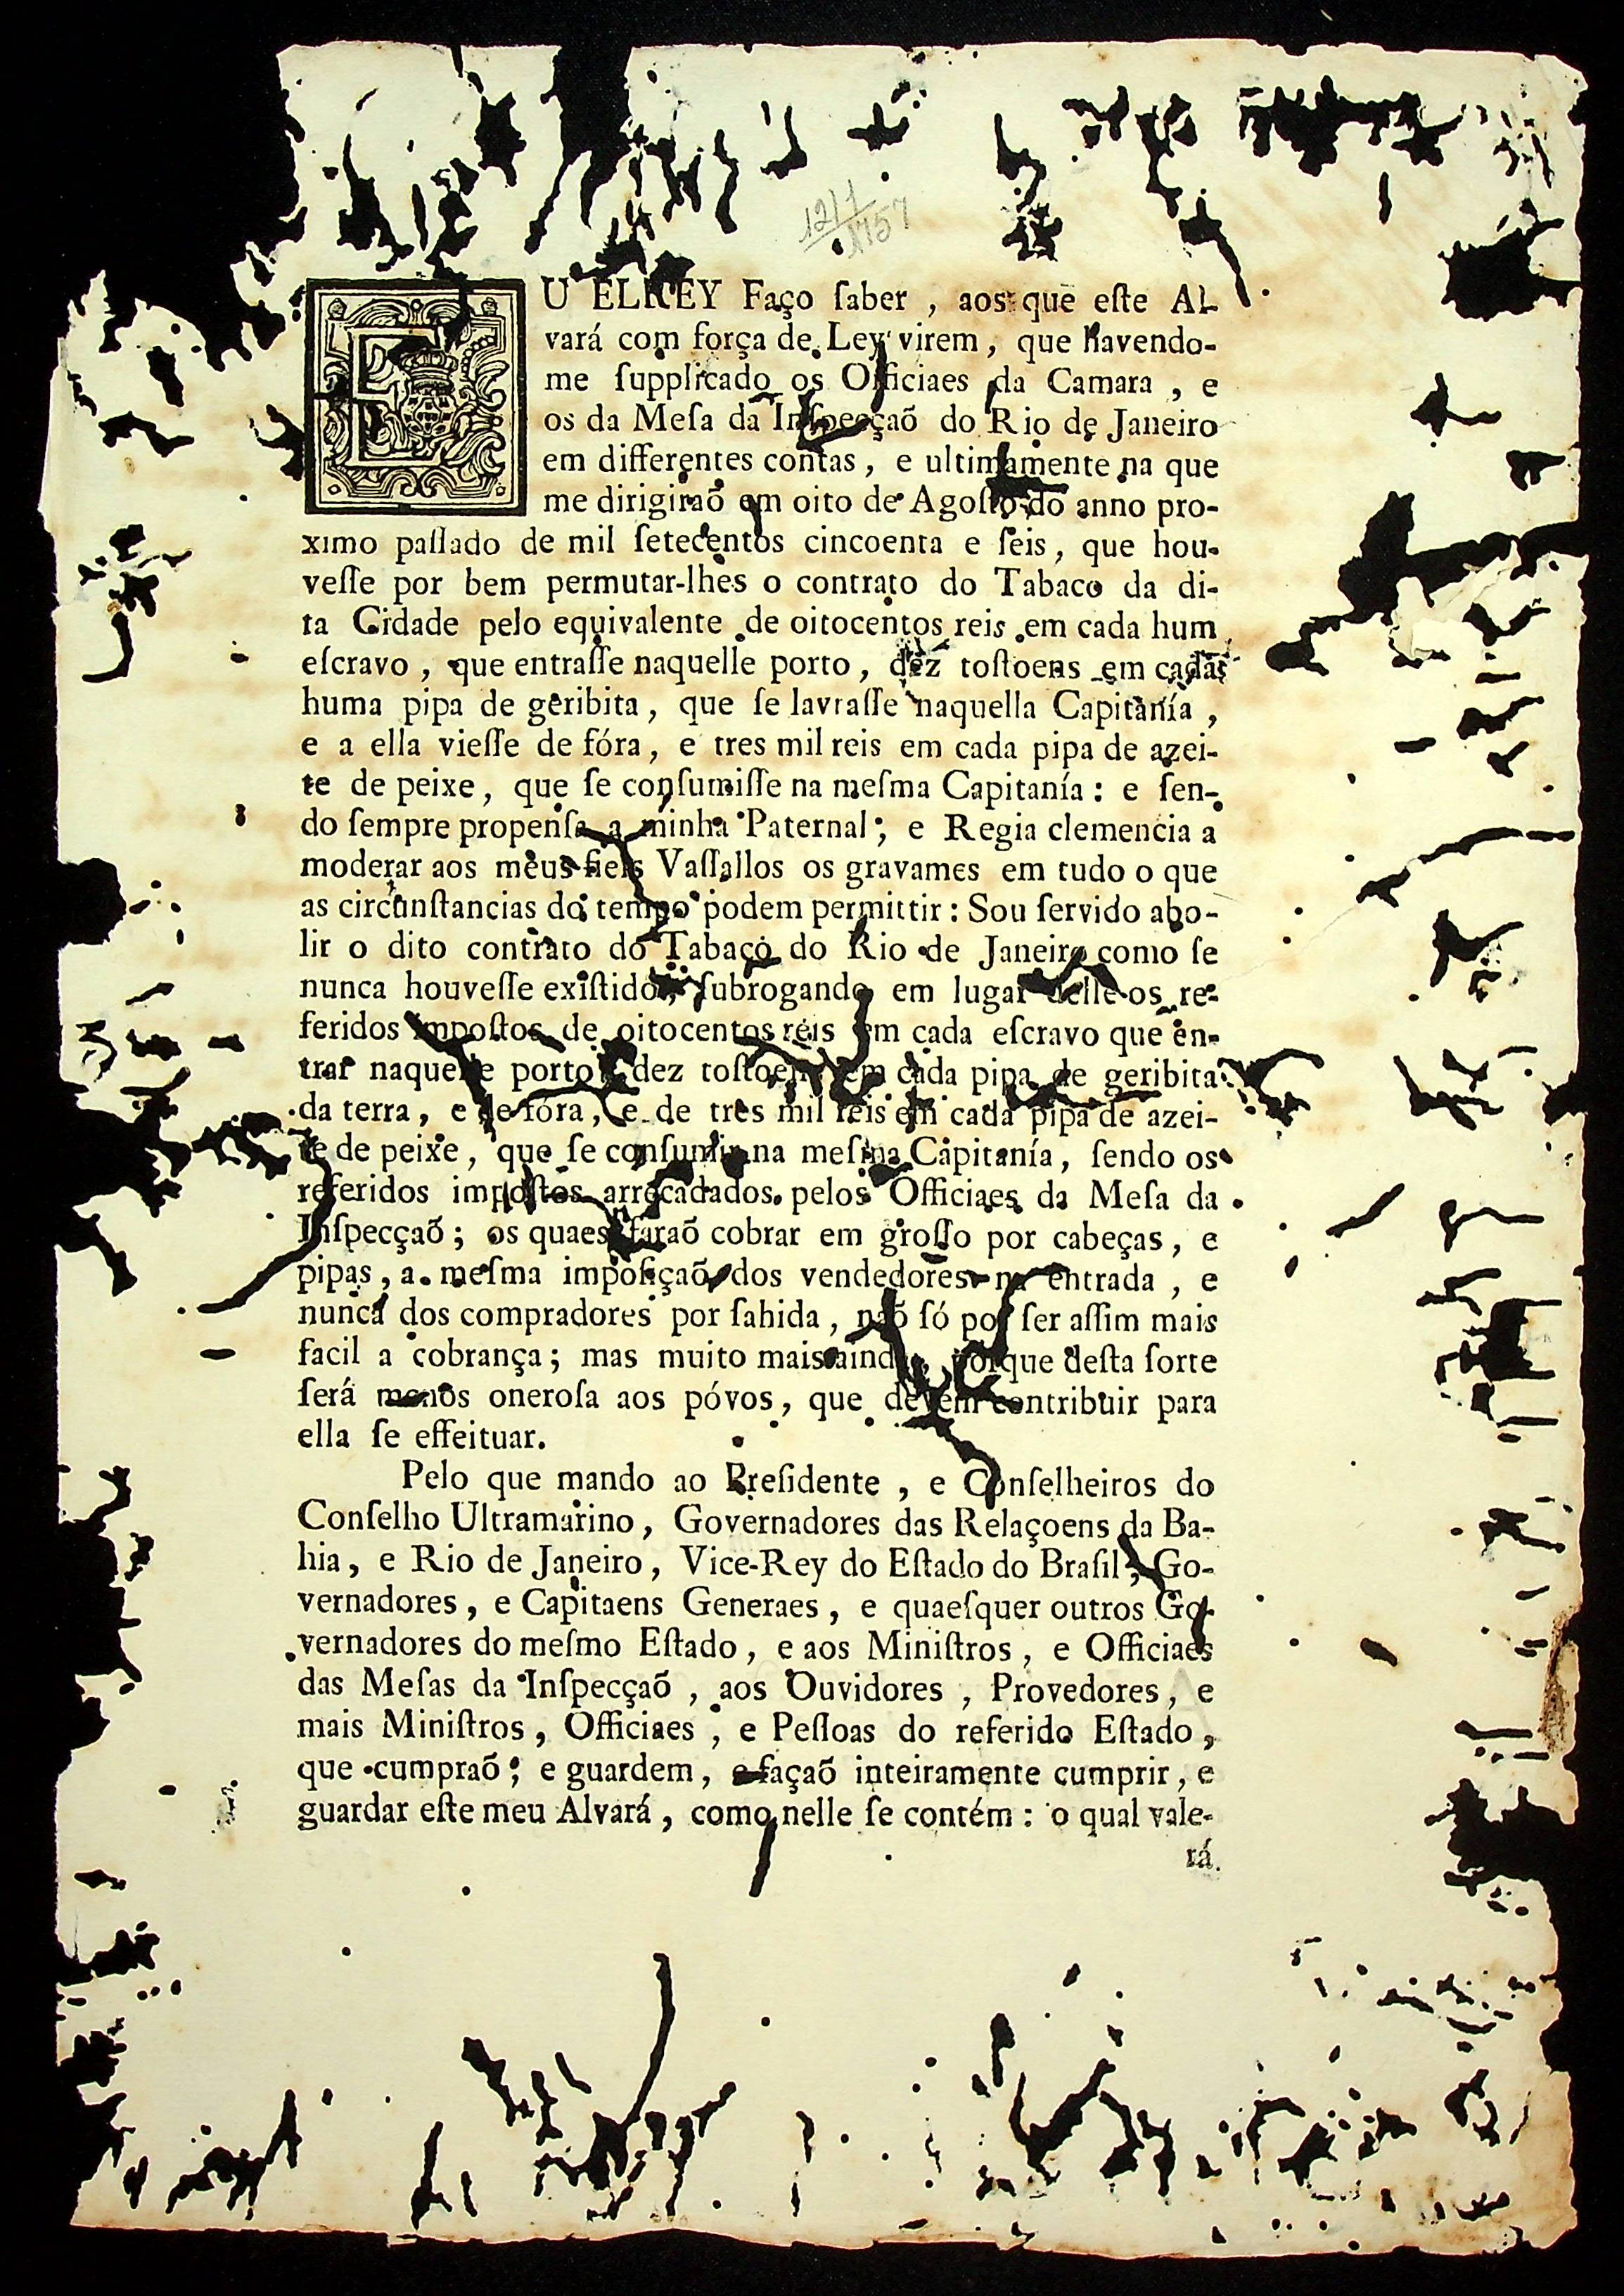 1217
1757
EU ELREY Faço ſaber , aos que eſte Al-
vará com força de Ley virem , que havendo-
me ſupplicado os Officiaes da Camara , e
os da Meſa da Inſpecçaõ do Rio de Janeiro
em differentes contas , e ultimamente na que
me dirigiraõ em oito de Agoſto do anno pro-
ximo paſſado de mil ſetecentos cincoenta e ſeis , que hou-
veſſe por bem permutar-lhes o contrato do Tabaco da di-
ta Cidade pelo equivalente de oitocentos reis em cada hum
eſcravo , que entraſſe naquelle porto , dez toſtoens em cada
huma pipa de geribita , que ſe lavraſſe naquella Capitanía ,
e a ella vieſſe de fóra , e tres mil reis em cada pipa de azei-
te de peixe , que ſe conſumiſſe na meſma Capitanía : e ſen-
do ſempre propenſa a minha Paternal , e Regia clemencia a
moderar aos meus fieis Vaſſallos os gravames em tudo o que
as circunſtancias do tempo podem permittir : Sou ſervido abo-
lir o dito contrato do Tabaco do Rio de Janeiro como ſe
nunca houveſſe exiſtido , ſubrogando em lugar delle os re-
feridos impoſtos de oitocentos reis em cada eſcravo que en-
trar naquelle porto , dez toſtoens em cada pipa de geribita
da terra , e de fóra , e de tres mil reis em cada pipa de azei-
te de peixe , que ſe conſumir na meſma Capitanía , ſendo os
referidos impoſtos arrecadados pelos Officiaes da Meſa da
Inſpecçaõ ; os quaes faraõ cobrar em groſſo por cabeças , e
pipas , a meſma impoſiçaõ dos vendedores na entrada , e
nunca dos compradores por ſahida , naõ ſó por ſer aſſim mais
facil a cobrança ; mas muito mais ainda , porque deſta ſorte
ſerá menos oneroſa aos póvos , que devem contribuir para
ella ſe effeituar.
Pelo que mando ao Preſidente , e Conſelheiros do
Conſelho Ultramarino , Governadores das Relaçoens da Ba-
hia , e Rio de Janeiro , Vice-Rey do Eſtado do Braſil , Go-
vernadores , e Capitaens Generaes , e quaeſquer outros Go-
vernadores do meſmo Eſtado , e aos Miniſtros , e Officiaes
das Meſas da Inſpecçaõ , aos Ouvidores , Provedores , e
mais Miniſtros , Officiaes , e Peſſoas do referido Eſtado ,
que cumpraõ , e guardem , e façaõ inteiramente cumprir , e
guardar eſte meu Alvará , como nelle ſe contém : o qual vale-
rá